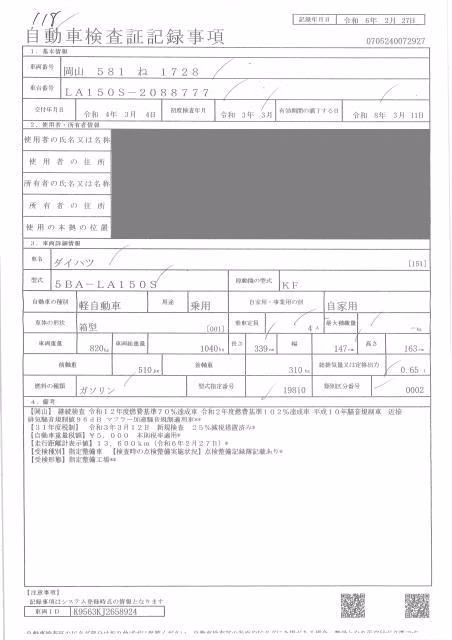 118
記録年月日 令和 6年 2月 27日
自動車検査証記録事項
0705240072927
1. 基本情報
車両番号 岡山 581 ね 1728
車台番号 LA150S-2088777
交付年月日 令和 4年 3月 4日 初度検査年月 令和 3年 3月 有効期間の満了する日 令和 8年 3月 11日
2. 使用者・所有者情報
使用者の氏名又は名称
使用者の住所
所有者の氏名又は名称
所有者の住所
使用の本拠の位置
3. 車両詳細情報
車名 ダイハツ [151]
型式 5BA-LA150S 原動機の型式 KF
自動車の種別 軽自動車 用途 乗用 自家用・事業用の別 自家用
車体の形状 箱型 [001] 乗車定員 4人 最大積載量 -kg
車両重量 820kg 車両総重量 1040kg 長さ 339cm 幅 147cm 高さ 163cm
前軸重 510kg 後軸重 310kg 総排気量又は定格出力 0.65
燃料の種類 ガソリン 型式指定番号 19810 類別区分番号 0002
4. 備考
【岡山】 継続検査 令和12年度燃費基準70%達成車 令和2年度燃費基準102%達成車 平成10年騒音規制車 近接
排気騒音規制値96dB マフラー加速騒音規制適用車**
【31年度税制】 令和3年3月12日 新規検査 25%減税措置済み*
【自動車重量税額】¥5,000 本則税率適用*
【走行距離計表示値】13,600km (令和6年2月27日)*
【受検種別】指定整備車 【検査時の点検整備実施状況】点検整備記録簿記載あり*
【受検形態】指定整備工場**
【注意事項】
記録事項はシステム登録時点の情報となります
車両ID K9563KJ2658924